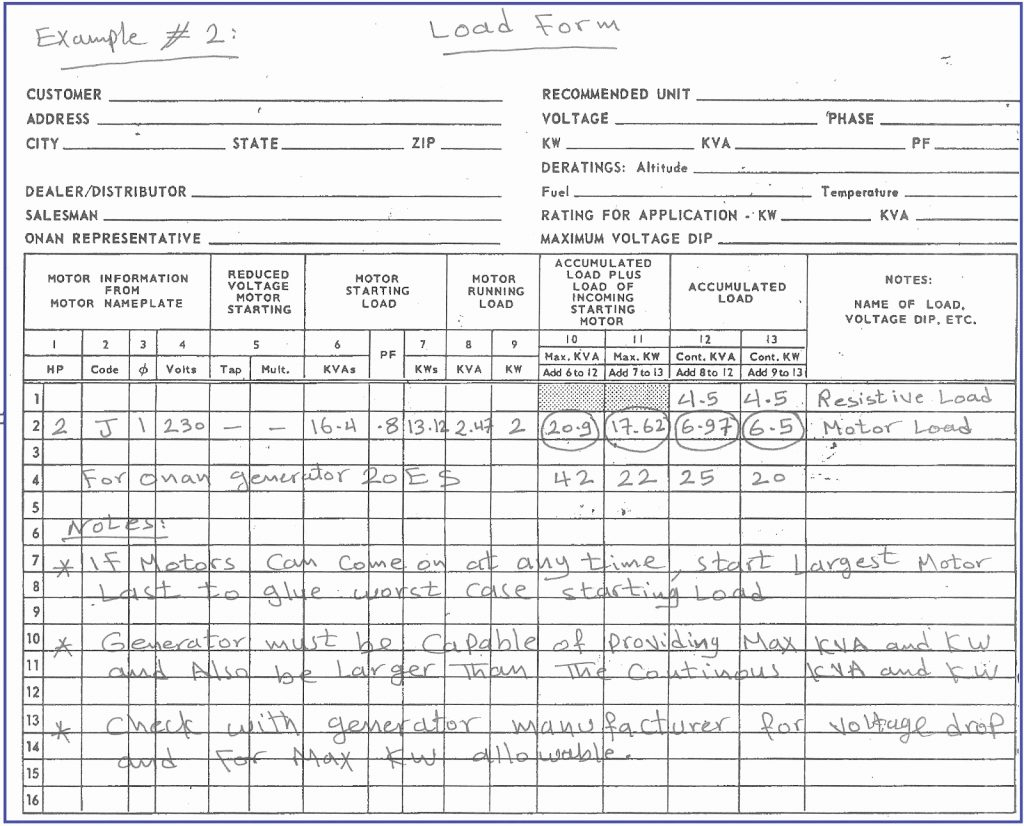 Example # 2:
Load Form
CUSTOMER
ADDRESS
CITY STATE ZIP
DEALER/DISTRIBUTOR
SALESMAN
ONAN REPRESENTATIVE
RECOMMENDED UNIT
VOLTAGE PHASE
KW KVA PF
DERATINGS: Altitude
Fuel Temperature
RATING FOR APPLICATION - KW KVA
MAXIMUM VOLTAGE DIP
MOTOR INFORMATION
FROM
MOTOR NAMEPLATE
REDUCED
VOLTAGE
MOTOR
STARTING
MOTOR
STARTING
LOAD
MOTOR
RUNNING
LOAD
ACCUMULATED
LOAD PLUS
LOAD OF
INCOMING
STARTING
MOTOR
ACCUMULATED
LOAD
NOTES:
NAME OF LOAD,
VOLTAGE DIP, ETC.
1 2 3 4 5 6 PF 7 8 9 10 11 12 13
HP Code ϕ Volts Tap Mult. KVAs KWs KVA KW Max. KVA Max. KW Cont. KVA Cont. KW
Add 6 to 12 Add 7 to 13 Add 8 to 12 Add 9 to 13
1 4.5 4.5 Resistive Load
2 2 J 1 230 - - 16.4 .8 13.12 2.47 2 20.9 17.62 6.97 6.5 Motor Load
3
4 For onan generator 20ES 42 22 25 20
5
6 Notes:
7 * If Motors Can Come on at any time, start Largest Motor
8 Last to give worst case starting Load
9
10 * Generator must be Capable of providing Max KVA and KW
11 and Also be Larger Than The Continous KVA and KW
12
13 * Check with generator manufacturer for voltage drop
14 and For Max KW allowable.
15
16